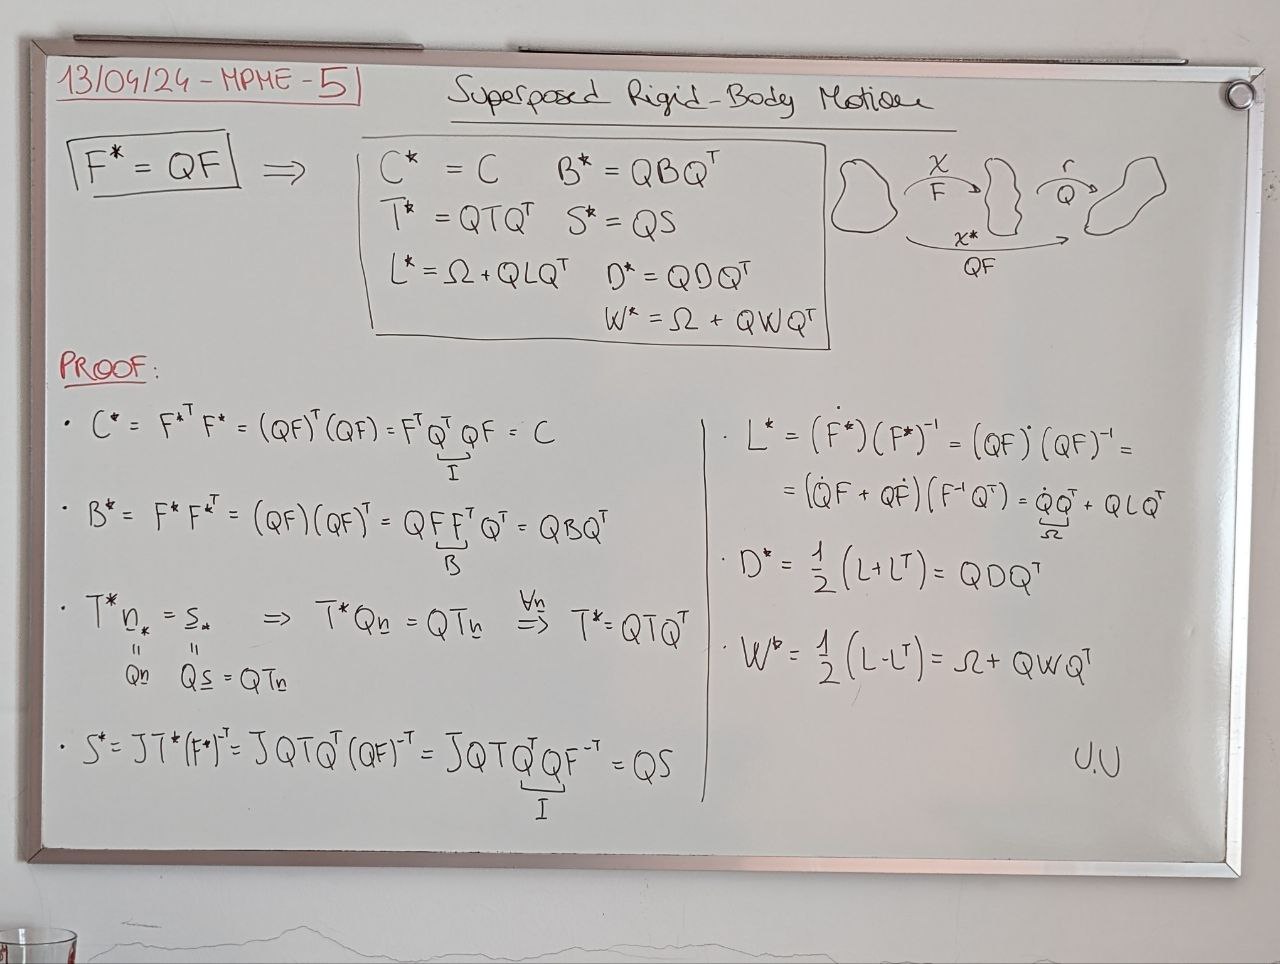 13/04/24 - MPME - 5
Superposed Rigid-Body Motion
F* = QF ⇒
C* = C B* = QBQᵀ
T* = QTQᵀ S* = QS
L* = Ω + QLQᵀ D* = QDQᵀ
W* = Ω + QWQᵀ
χ r
F Q
χ*
QF
PROOF:
· C* = F*ᵀ F* = (QF)ᵀ(QF) = FᵀQᵀQF = C
I
· B* = F* F*ᵀ = (QF)(QF)ᵀ = QFFᵀQᵀ = QBQᵀ
B
· T*n* = s* ⇒ T*Qn = QTn ∀n ⇒ T* = QTQᵀ
= =
Qn Qs = QTn
· S* = JT*(F*)⁻ᵀ = JQTQᵀ(QF)⁻ᵀ = JQTQᵀQF⁻ᵀ = QS
I
· L* = (Ḟ*)(F*)⁻¹ = (QF)˙(QF)⁻¹ =
= (Q̇F + QḞ)(F⁻¹Qᵀ) = Q̇Qᵀ + QLQᵀ
Ω
· D* = 1/2 (L+Lᵀ) = QDQᵀ
· W* = 1/2 (L-Lᵀ) = Ω + QWQᵀ
U.U